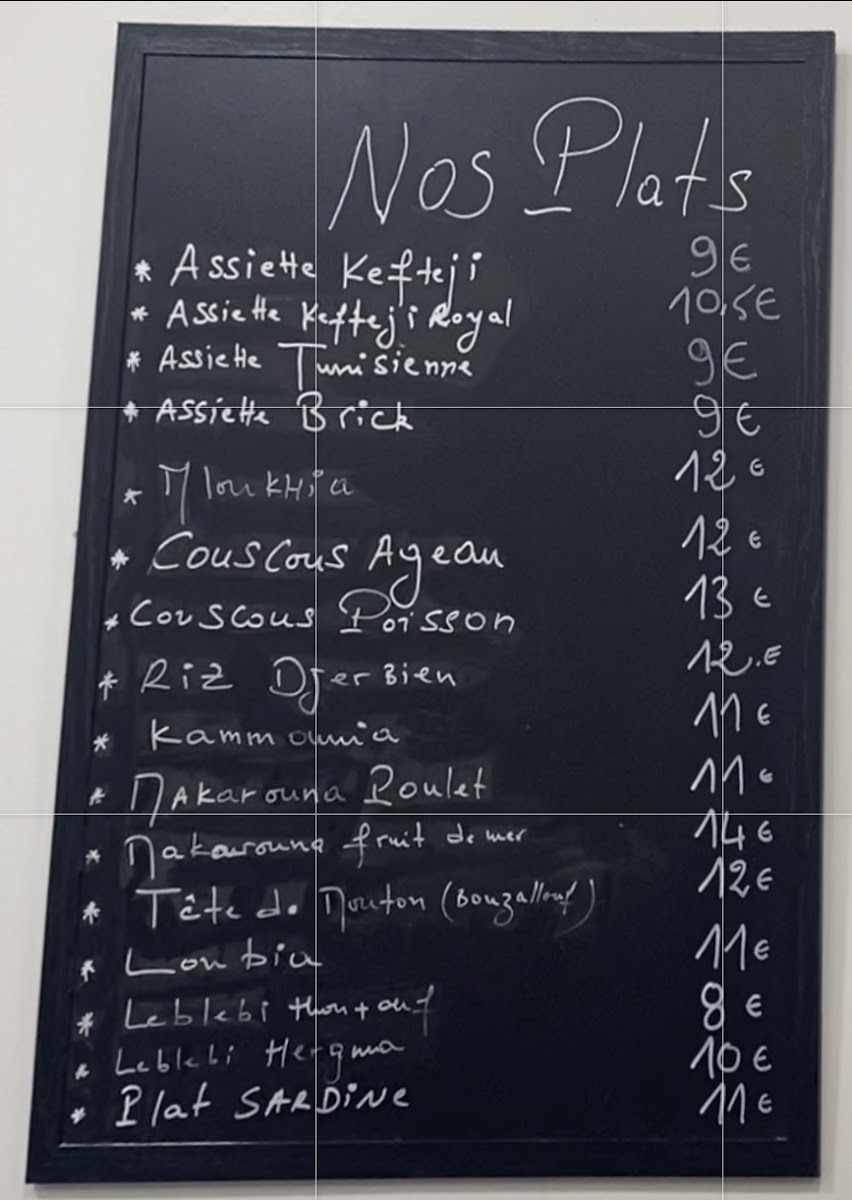 Nos Plats
* Assiette Kefteji 9€
* Assiette Kefteji Royal 10,5€
* Assiette Tunisienne 9€
* Assiette Brick 9€
* Mloukhia 12€
* Couscous Ageau 12€
* Couscous Poisson 13€
* Riz Djerbien 12.€
* Kammounia 11€
* Makarouna Poulet 11€
* Makarouna fruit de mer 14€
* Tête de Mouton (Bouzallouf) 12€
* Loubia 11€
* Leblebi thon + œuf 8€
* Leblebi Hergma 10€
* Plat SARDiNe 11€